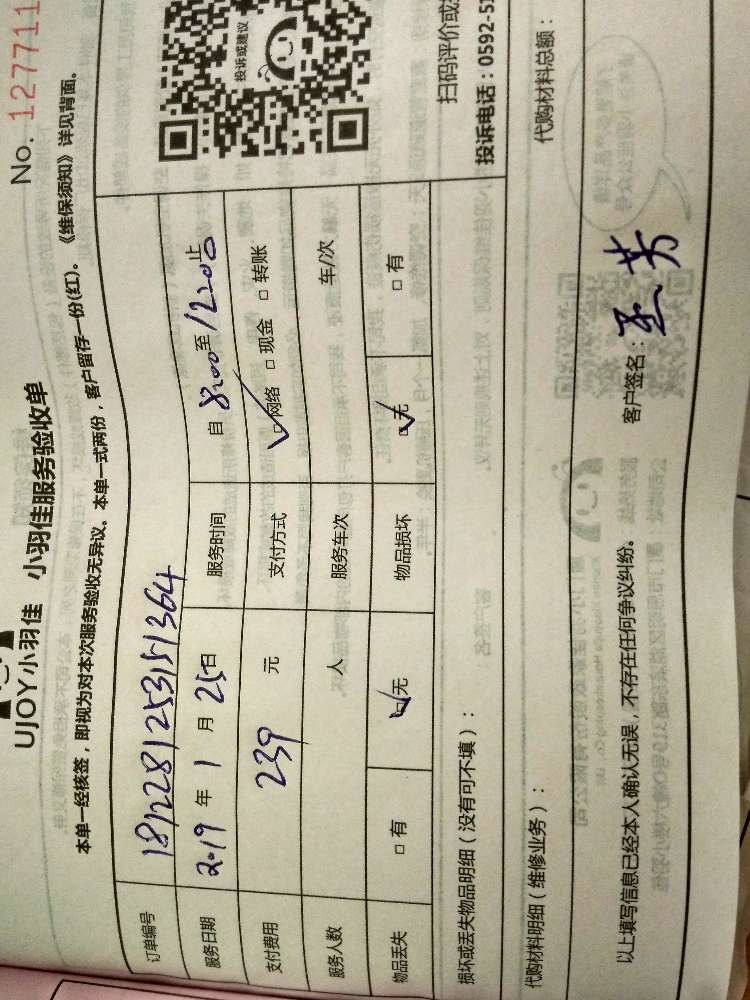 No. 127711
UJOY小羽佳 小羽佳服务验收单
本单一经核签，即视为对本次服务验收无异议。本单一式两份，客户留存一份(红)。《维保须知》详见背面。
订单编号 181228125315151364
服务日期 2019 年 1 月 25 日 服务时间 自 8:00 至 12:00 止
支付费用 239 元 支付方式 ☑网络 □现金 □转账
服务人数 人 服务车次 车/次
物品丢失 □有 ☑无 物品损坏 ☑无 □有
损坏或丢失物品明细（没有可不填）：
投诉或建议
扫码评价或
投诉电话：0592-51
代购材料明细（维修业务）： 代购材料总额：
以上填写信息已经本人确认无误，不存在任何争议纠纷。 客户签名：